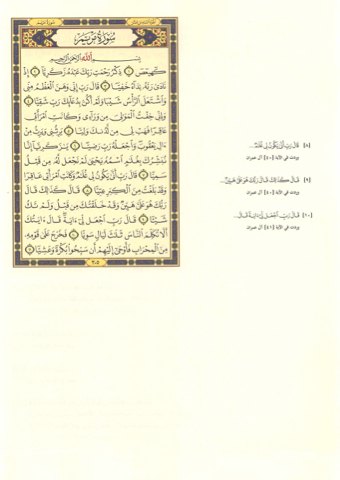 سورة مريم
الجزء السادس عشر
سُورَةُ مَرْيَمَ
بِسْمِ ٱللَّهِ ٱلرَّحْمَٰنِ ٱلرَّحِيمِ
كٓهيعٓصٓ ١ ذِكْرُ رَحْمَتِ رَبِّكَ عَبْدَهُۥ زَكَرِيَّآ ٢ إِذْ
نَادَىٰ رَبَّهُۥ نِدَآءً خَفِيًّا ٣ قَالَ رَبِّ إِنِّي وَهَنَ ٱلْعَظْمُ مِنِّي
وَٱشْتَعَلَ ٱلرَّأْسُ شَيْبًا وَلَمْ أَكُنۢ بِدُعَآئِكَ رَبِّ شَقِيًّا ٤
وَإِنِّي خِفْتُ ٱلْمَوَٰلِيَ مِن وَرَآءِي وَكَانَتِ ٱمْرَأَتِي
عَاقِرًا فَهَبْ لِي مِن لَّدُنكَ وَلِيًّا ٥ يَرِثُنِي وَيَرِثُ مِنْ
ءَالِ يَعْقُوبَ وَٱجْعَلْهُ رَبِّ رَضِيًّا ٦ يَٰزَكَرِيَّآ إِنَّا
نُبَشِّرُكَ بِغُلَٰمٍ ٱسْمُهُۥ يَحْيَىٰ لَمْ نَجْعَل لَّهُۥ مِن قَبْلُ
سَمِيًّا ٧ قَالَ رَبِّ أَنَّىٰ يَكُونُ لِي غُلَٰمٌ وَكَانَتِ ٱمْرَأَتِي عَاقِرًا
وَقَدْ بَلَغْتُ مِنَ ٱلْكِبَرِ عِتِيًّا ٨ قَالَ كَذَٰلِكَ قَالَ
رَبُّكَ هُوَ عَلَيَّ هَيِّنٌ وَقَدْ خَلَقْتُكَ مِن قَبْلُ وَلَمْ تَكُ
شَيْئًا ٩ قَالَ رَبِّ ٱجْعَل لِّي ءَايَةً قَالَ ءَايَتُكَ
أَلَّا تُكَلِّمَ ٱلنَّاسَ ثَلَٰثَ لَيَالٍ سَوِيًّا ١٠ فَخَرَجَ عَلَىٰ قَوْمِهِۦ
مِنَ ٱلْمِحْرَابِ فَأَوْحَىٰٓ إِلَيْهِمْ أَن سَبِّحُوا۟ بُكْرَةً وَعَشِيًّا ١١
٣٠٥
(٨) قَالَ رَبِّ أَنَّىٰ يَكُونُ لِي غُلَٰمٌ...
وردت في الآية [٤٠] آل عمران
(٩) قَالَ كَذَٰلِكَ قَالَ رَبُّكَ هُوَ عَلَيَّ هَيِّنٌ...
وردت في الآية [٤٠] آل عمران
(١٠) قَالَ رَبِّ ٱجْعَل لِّي ءَايَةً قَالَ...
وردت في الآية [٤١] آل عمران